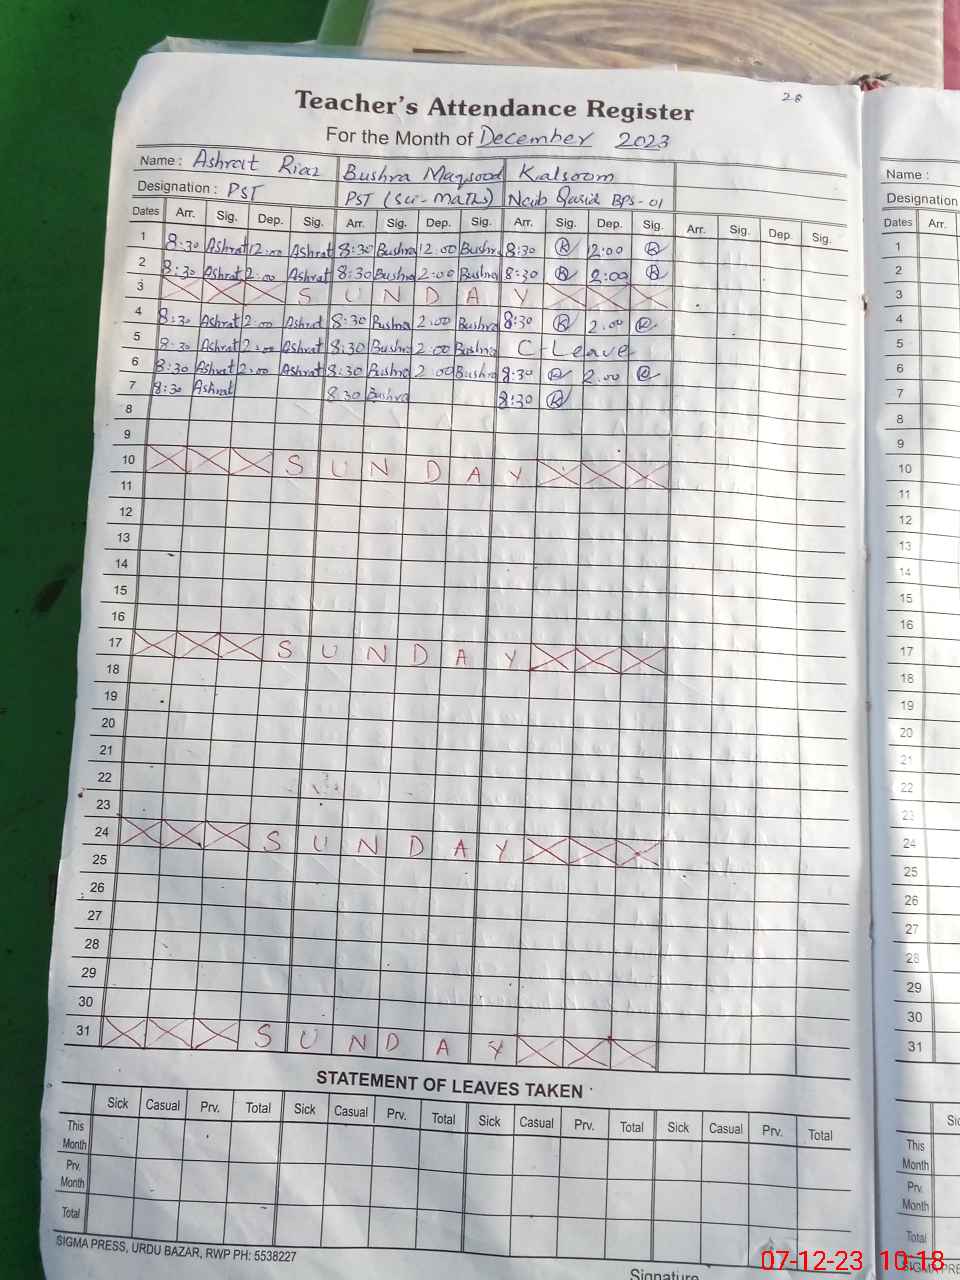 28
Teacher's Attendance Register
For the Month of December 2023
Name : Ashrat Riaz Bushra Maqsood Kalsoom
Designation : PST PST (Sci-maths) Naib Qasid BPS-01
Dates Arr. Sig. Dep. Sig. Arr. Sig. Dep. Sig. Arr. Sig. Dep. Sig. Arr. Sig. Dep. Sig.
1 8:30 Ashrat 2:00 Ashrat 8:30 Bushra 2:00 Bushra 8:30 K 2:00 K
2 8:30 Ashrat 2:00 Ashrat 8:30 Bushra 2:00 Bushra 8:30 K 2:00 K
3 S U N D A Y
4 8:30 Ashrat 2:00 Ashrat 8:30 Bushra 2:00 Bushra 8:30 K 2:00 K
5 8:30 Ashrat 2:00 Ashrat 8:30 Bushra 2:00 Bushra C-Leave
6 8:30 Ashrat 2:00 Ashrat 8:30 Bushra 2:00 Bushra 8:30 K 2:00 K
7 8:30 Ashrat 8:30 Bushra 8:30 K
8
9
10 S U N D A Y
11
12
13
14
15
16
17 S U N D A Y
18
19
20
21
22
23
24 S U N D A Y
25
26
27
28
29
30
31 S U N D A Y
STATEMENT OF LEAVES TAKEN
Sick Casual Prv. Total Sick Casual Prv. Total Sick Casual Prv. Total Sick Casual Prv. Total
This Month
Prv. Month
Total
SIGMA PRESS, URDU BAZAR, RWP PH: 5538227
Signature
Name :
Designation
Dates Arr.
1
2
3
4
5
6
7
8
9
10
11
12
13
14
15
16
17
18
19
20
21
22
23
24
25
26
27
28
29
30
31
This Month
Prv. Month
Total
07-12-23 10:18